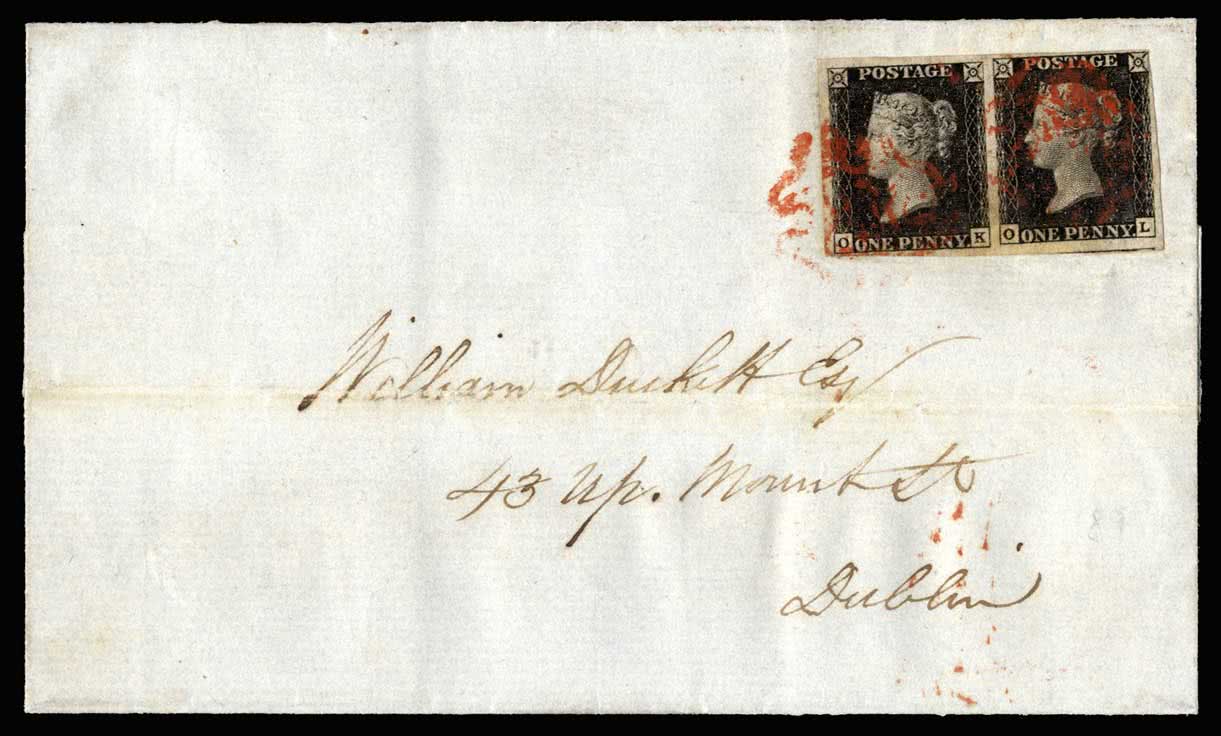 POSTAGE POSTAGE
O ONE PENNY K O ONE PENNY L
William Duckett Esq
43 Up. Mount St
Dublin